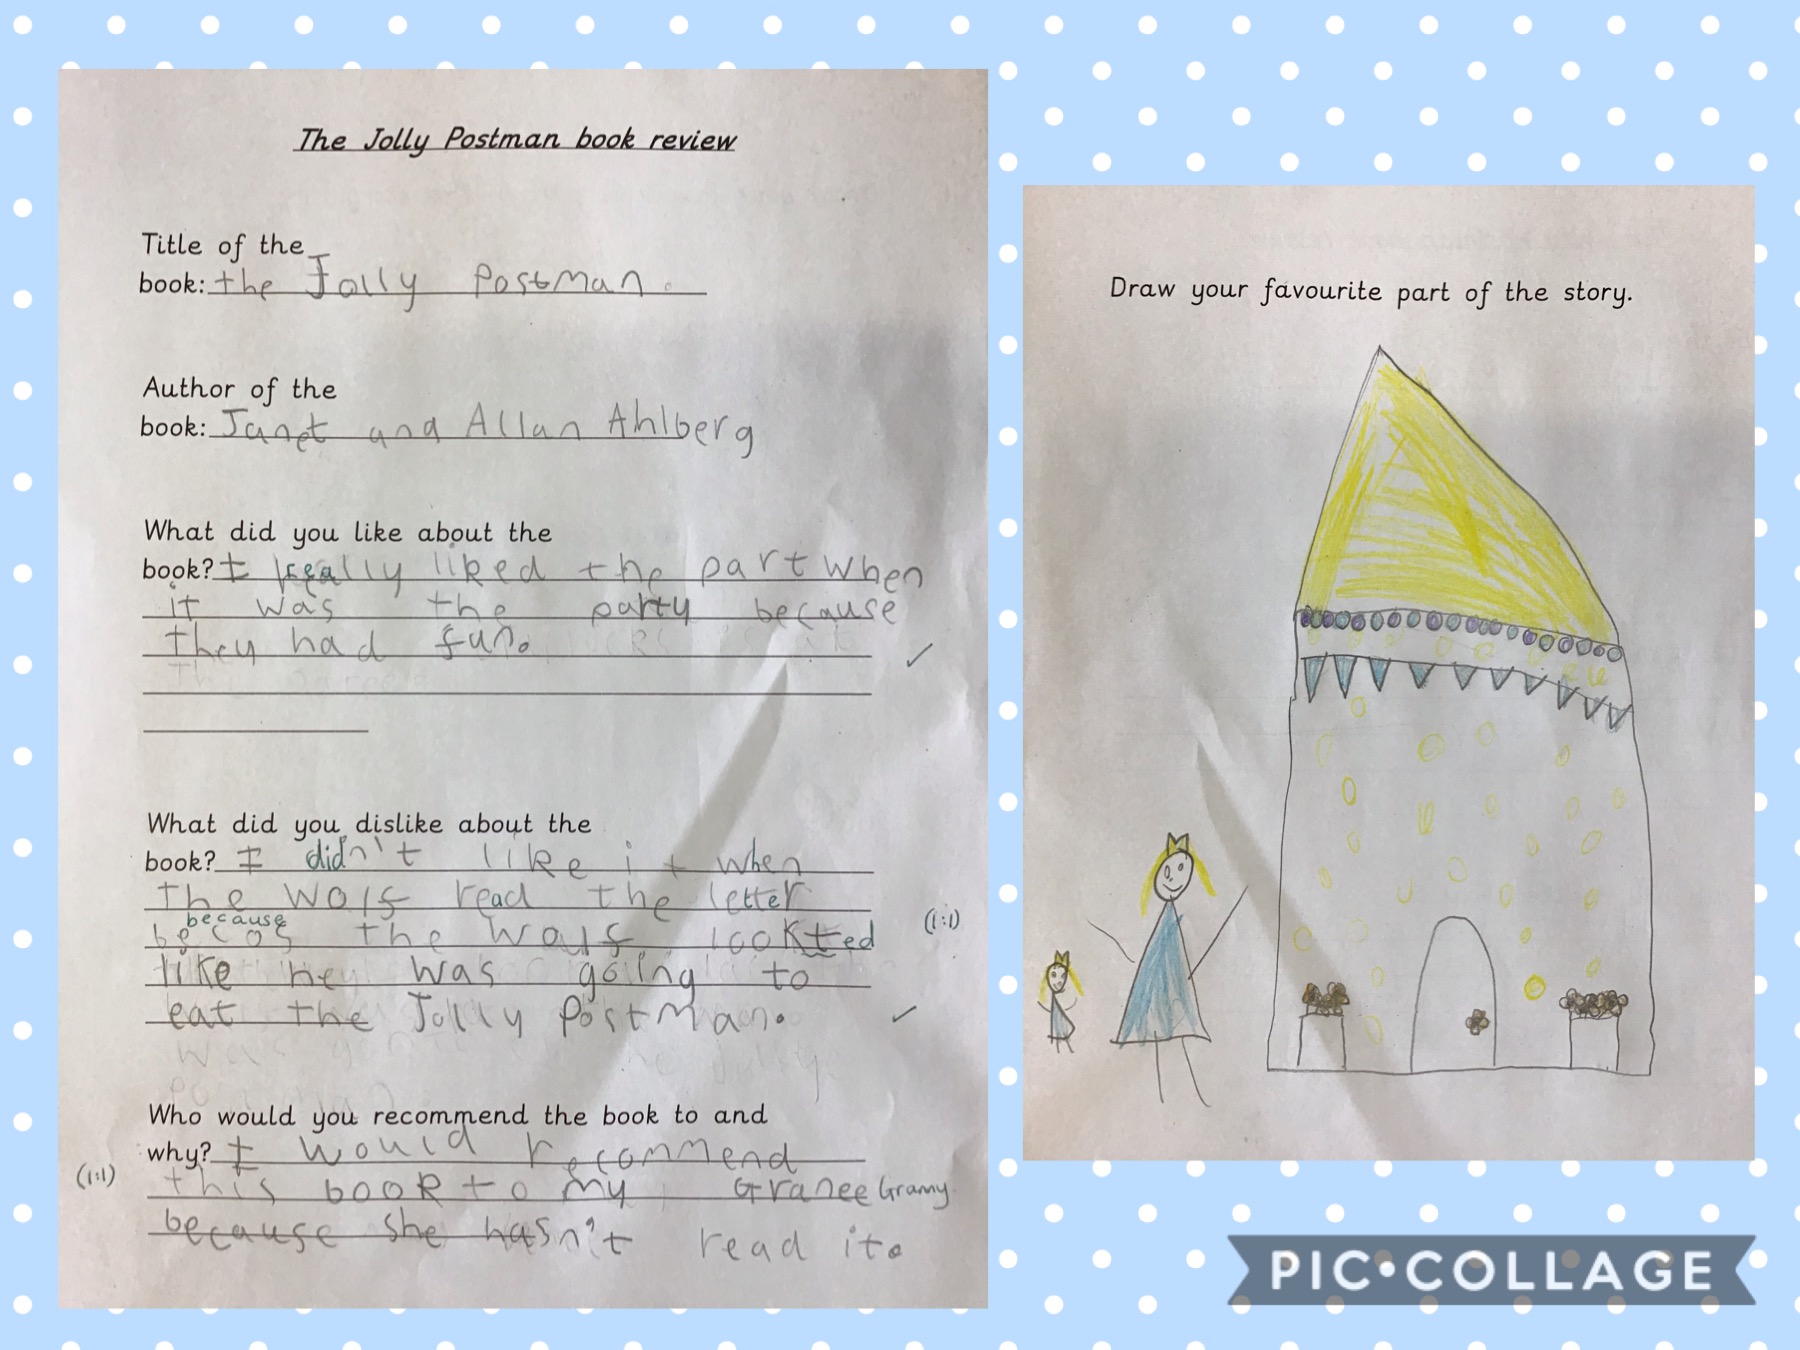 The Jolly Postman book review
Title of the
book: the Jolly Postman.
Author of the
book: Janet and Allan Ahlberg
What did you like about the
book? I really liked the part when
it was the party because
they had fun.
What did you dislike about the
book? I didn't like it when
the wolf read the letter
because
becos the wolf lookted
(1:1)
like he was going to
eat the Jolly Postman.
Who would you recommend the book to and
why? I would recommend
(1:1)
this book to my Granee Granny
because she hasn't read it.
Draw your favourite part of the story.
PIC•COLLAGE